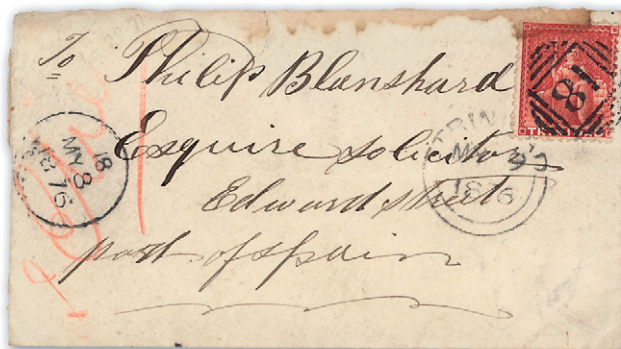 To Philip Blanshard
Esquire Solicitor
Edward street
port of spain
18
MY 8
76
TRINIDAD
MY
1876
81